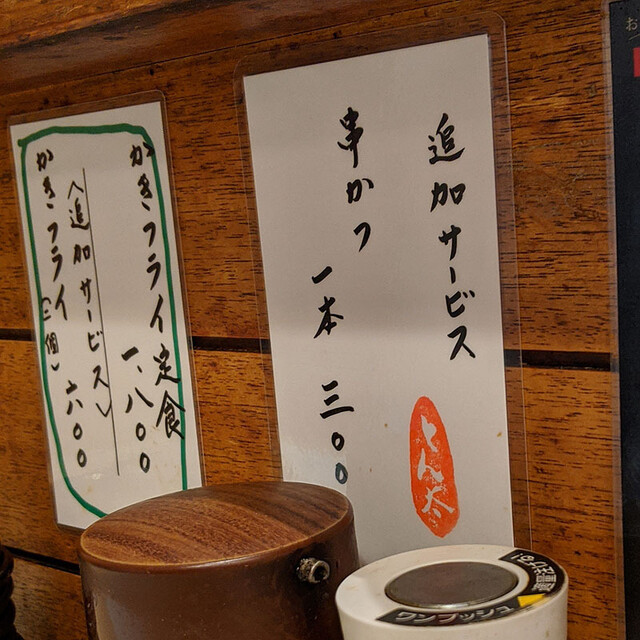 追加サービス
串かつ
一本 三〇〇
とん太
かきフライ定食
一、八〇〇
〈追加サービス〉
かきフライ(二個)六〇〇
ワンプッシュ